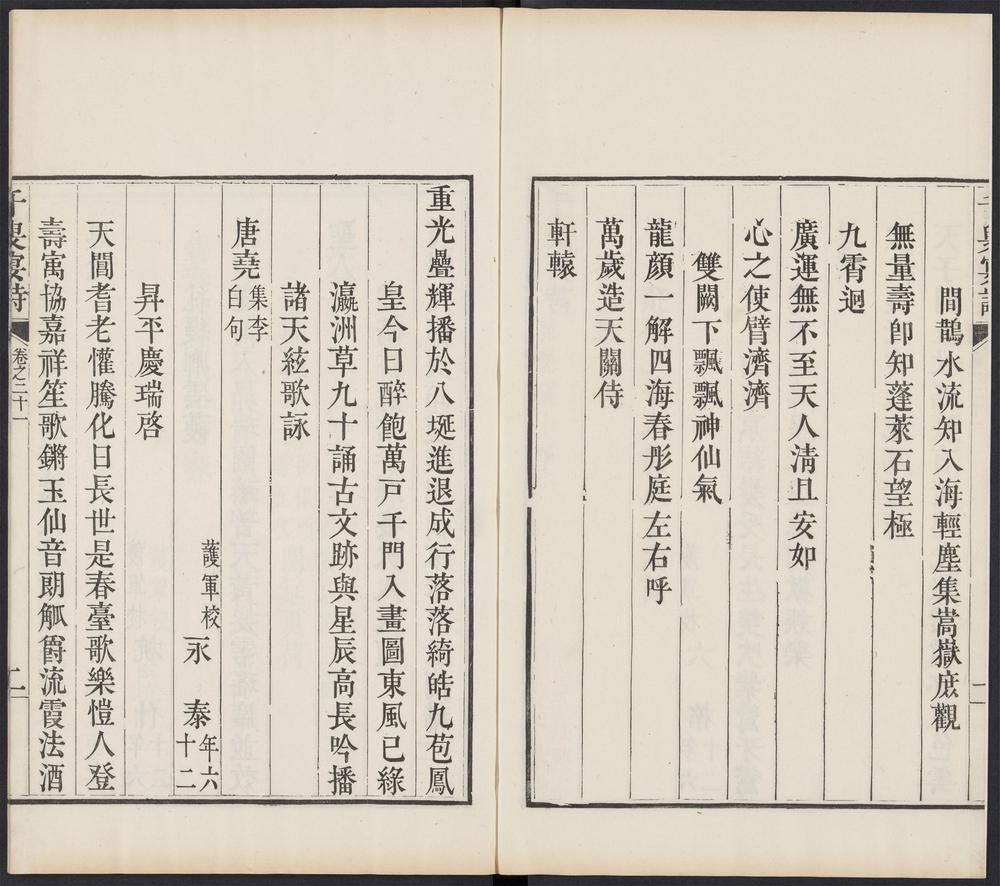 間鵲水流知入海輕塵集嵩嶽庶觀
無量壽卽知蓬萊石望極
九霄迥
廣運無不至天人淸且安如
心之使臂濟濟
雙闕下飄飄神仙氣
龍顏一解四海春彤庭左右呼
萬歲造天關侍
軒轅
重光疊輝播於八埏進退成行落落綺皓九苞鳳
皇今日醉飽萬戸千門入畫圖東風已綠
瀛洲草九十誦古文跡與星辰高長吟播
諸天絃歌詠
唐堯集李白句
護軍校永泰年六十二
昇平慶瑞啓
天閶耆老懽騰化日長世是春臺歌樂愷人登
壽寓協嘉祥笙歌鏘玉仙音朗觚爵流霞法酒
千叟宴詩
卷之二十一
二